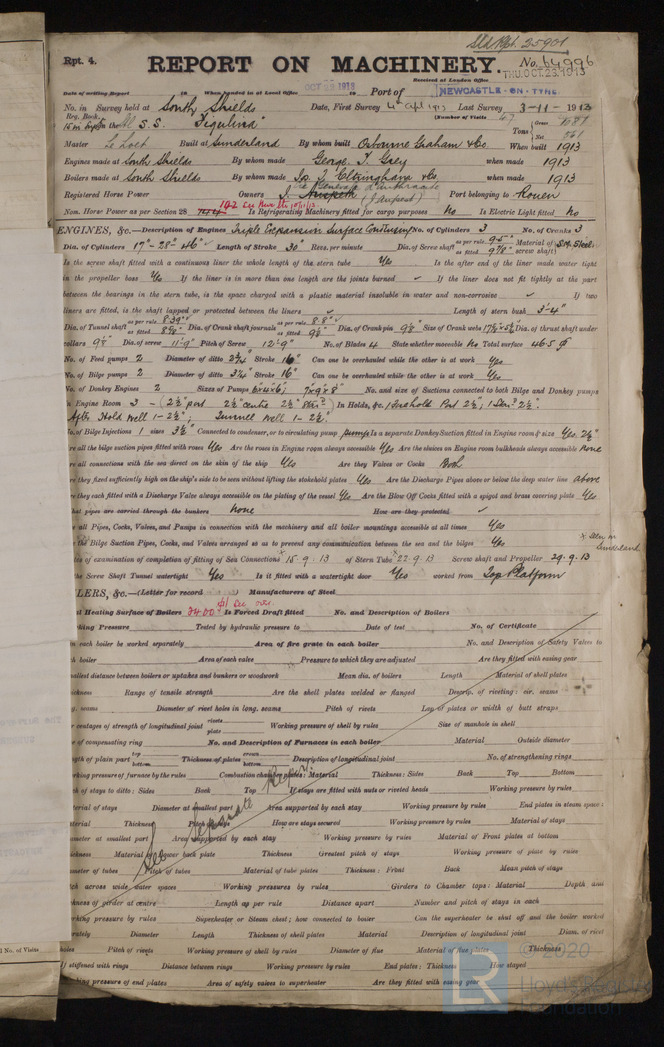 Sld Rpt. 25901
Rpt. 4.
REPORT ON MACHINERY.
No. 64996
THU. OCT. 23. 1913
Date of writing Report 19 When handed in at Local Office OCT 1913 19 Port of NEWCASTLE-ON-TYNE
Received at London Office
No. in Survey held at South Shields Date, First Survey Last Survey 3-11-1913
Reg. Book. (Number of Visits 47
on the S.S. Tons Gross
Net
Master Built at Sunderland By whom built Osbourne Graham & Co. When built 1913
Engines made at South Shields By whom made George T. Grey when made 1913
Boilers made at South Shields By whom made & Co. when made 1913
Registered Horse Power Owners Port belonging to Rouen
Nom. Horse Power as per Section 28 192 Is Refrigerating Machinery fitted for cargo purposes No Is Electric Light fitted No
ENGINES, &c.—Description of Engines Triple Expansion Surface Condensing No. of Cylinders 3 No. of Cranks 3
Dia. of Cylinders 17"-28"-46" Length of Stroke 30" Revs. per minute Dia. of Screw shaft as per rule 9.5" as fitted 9⅞" Material of screw shaft) S.M. Steel
Is the screw shaft fitted with a continuous liner the whole length of the stern tube Yes Is the after end of the liner made water tight
in the propeller boss Yes If the liner is in more than one length are the joints burned ✓ If the liner does not fit tightly at the part
between the bearings in the stern tube, is the space charged with a plastic material insoluble in water and non-corrosive ✓ If two
liners are fitted, is the shaft lapped or protected between the liners ✓ Length of stern bush 3'-4"
Dia. of Tunnel shaft as per rule 8.39" as fitted Dia. of Crank shaft journals as per rule 8.8" as fitted 9⅛" Dia. of Crank pin 9⅛" Size of Crank webs Dia. of thrust shaft under
collars 9⅛" Dia. of screw 11'-9" Pitch of Screw 12'-9" No. of Blades 4 State whether moveable No Total surface 46.5
No. of Feed pumps 2 Diameter of ditto 2¾" Stroke 16" Can one be overhauled while the other is at work Yes
No. of Bilge pumps 2 Diameter of ditto Stroke 16" Can one be overhauled while the other is at work Yes
No. of Donkey Engines 2 Sizes of Pumps 6x4x6; 7x9x8" No. and size of Suctions connected to both Bilge and Donkey pumps
in Engine Room 3 - (2½" port 2½" centre 2½" Star'd) In Holds, &c. 1 Forehold Port 2½", 1 Star'd 2½".
After Hold Well 1-2½"; Tunnel Well 1-2½".
No. of Bilge Injections 1 sizes 3½" Connected to condenser, or to circulating pump pump Is a separate Donkey Suction fitted in Engine room & size Yes. 2½"
re all the bilge suction pipes fitted with roses Yes Are the roses in Engine room always accessible Yes Are the sluices on Engine room bulkheads always accessible None
re all connections with the sea direct on the skin of the ship Yes Are they Valves or Cocks Both
re they fixed sufficiently high on the ship's side to be seen without lifting the stokehold plates Yes Are the Discharge Pipes above or below the deep water line above
re they each fitted with a Discharge Valve always accessible on the plating of the vessel Yes Are the Blow Off Cocks fitted with a spigot and brass covering plate Yes
hat pipes are carried through the bunkers None How are they protected ✓
re all Pipes, Cocks, Valves, and Pumps in connection with the machinery and all boiler mountings accessible at all times Yes
re the Bilge Suction Pipes, Cocks, and Valves arranged so as to prevent any communication between the sea and the bilges Yes
x Seen in Sunderland
tes of examination of completion of fitting of Sea Connections x 15-9-13 of Stern Tube x 22-9-13 Screw shaft and Propeller 29-9-13
the Screw Shaft Tunnel watertight Yes Is it fitted with a watertight door Yes worked from Top Platform
LERS, &c.—(Letter for record ) Manufacturers of Steel
al Heating Surface of Boilers 3400 See over Is Forced Draft fitted No. and Description of Boilers
rking Pressure Tested by hydraulic pressure to Date of test No. of Certificate
n each boiler be worked separately Area of fire grate in each boiler No. and Description of Safety Valves to
h boiler Area of each valve Pressure to which they are adjusted Are they fitted with easing gear
allest distance between boilers or uptakes and bunkers or woodwork Mean dia. of boilers Length Material of shell plates
ickness Range of tensile strength Are the shell plates welded or flanged Descrip. of riveting: cir. seams
g. seams Diameter of rivet holes in long. seams Pitch of rivets Lap of plates or width of butt straps
r centages of strength of longitudinal joint rivets plate Working pressure of shell by rules Size of manhole in shell
e of compensating ring No. and Description of Furnaces in each boiler Material Outside diameter
ngth of plain part top bottom Thickness of plates crown bottom Description of longitudinal joint No. of strengthening rings
rking pressure of furnace by the rules Combustion chamber plates: Material Thickness: Sides Back Top Bottom
ch of stays to ditto: Sides Back Top If stays are fitted with nuts or riveted heads Working pressure by rules
terial of stays Diameter at smallest part Area supported by each stay Working pressure by rules End plates in steam space:
terial Thickness Pitch of stays How are stays secured Working pressure by rules Material of stays
ameter at smallest part Area supported by each stay Working pressure by rules Material of Front plates at bottom
ickness Material of Lower back plate Thickness Greatest pitch of stays Working pressure of plate by rules
See Separate Report
ameter of tubes Pitch of tubes Material of tube plates Thickness: Front Back Mean pitch of stays
tch across wide water spaces Working pressures by rules Girders to Chamber tops: Material Depth and
ickness of girder at centre Length as per rule Distance apart Number and pitch of stays in each
rking pressure by rules Superheater or Steam chest; how connected to boiler Can the superheater be shut off and the boiler worked
rately Diameter Length Thickness of shell plates Material Description of longitudinal joint Diam. of rivet
holes Pitch of rivets Working pressure of shell by rules Diameter of flue Material of flue plates Thickness
If stiffened with rings Distance between rings Working pressure by rules End plates: Thickness How stayed
king pressure of end plates Area of safety valves to superheater Are they fitted with easing gear
d No. of Visits
© 2020
LR
Lloyd's Register
Foundation